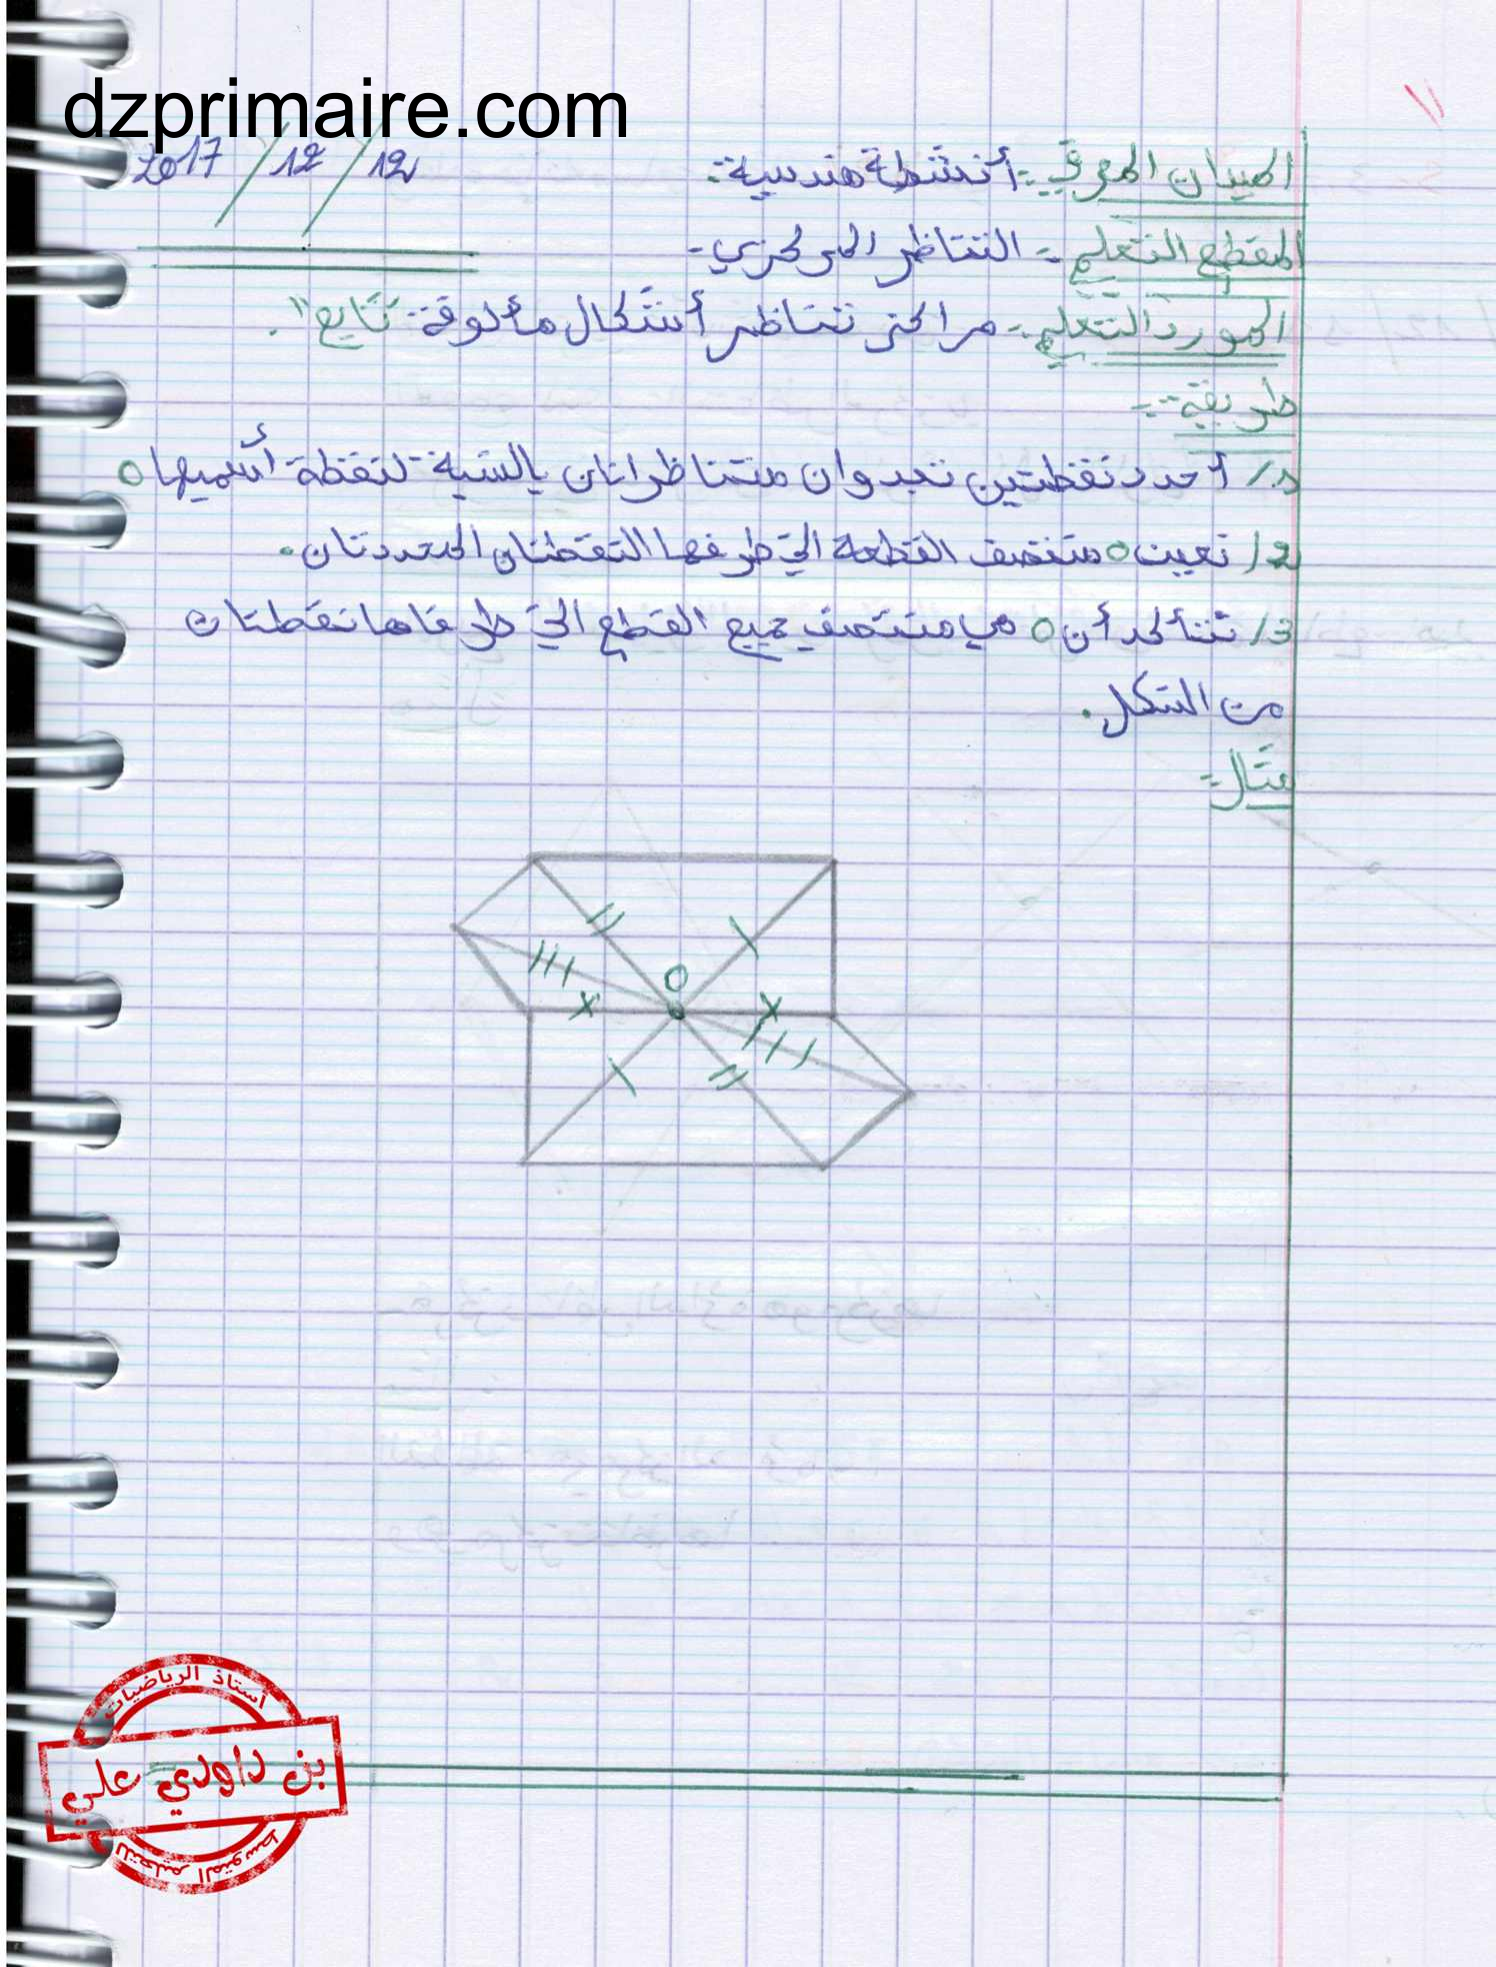 dzprimaire.com
2017 / 12 / 12
الميدان المعرفي :- أنشطة هندسية :
المقطع التعلمي :- التناظر المركزي -
المورد التعلمي :- مراكز تناظر أشكال مألوفة "تابع" .
طريقة :-
1/ أحدد نقطتين تبدوان متناظرتان بالنسبة لنقطة أسميها O
2/ نعين O منتصف القطعة التي طرفها النقطتان المحددتان .
3/ نتأكد أن O هي منتصف جميع القطع التي طرفاها نقطتان
من الشكل .
مثال :-
O
أستاذ الرياضيات
بن داودي علي
للتعليم المتوسط